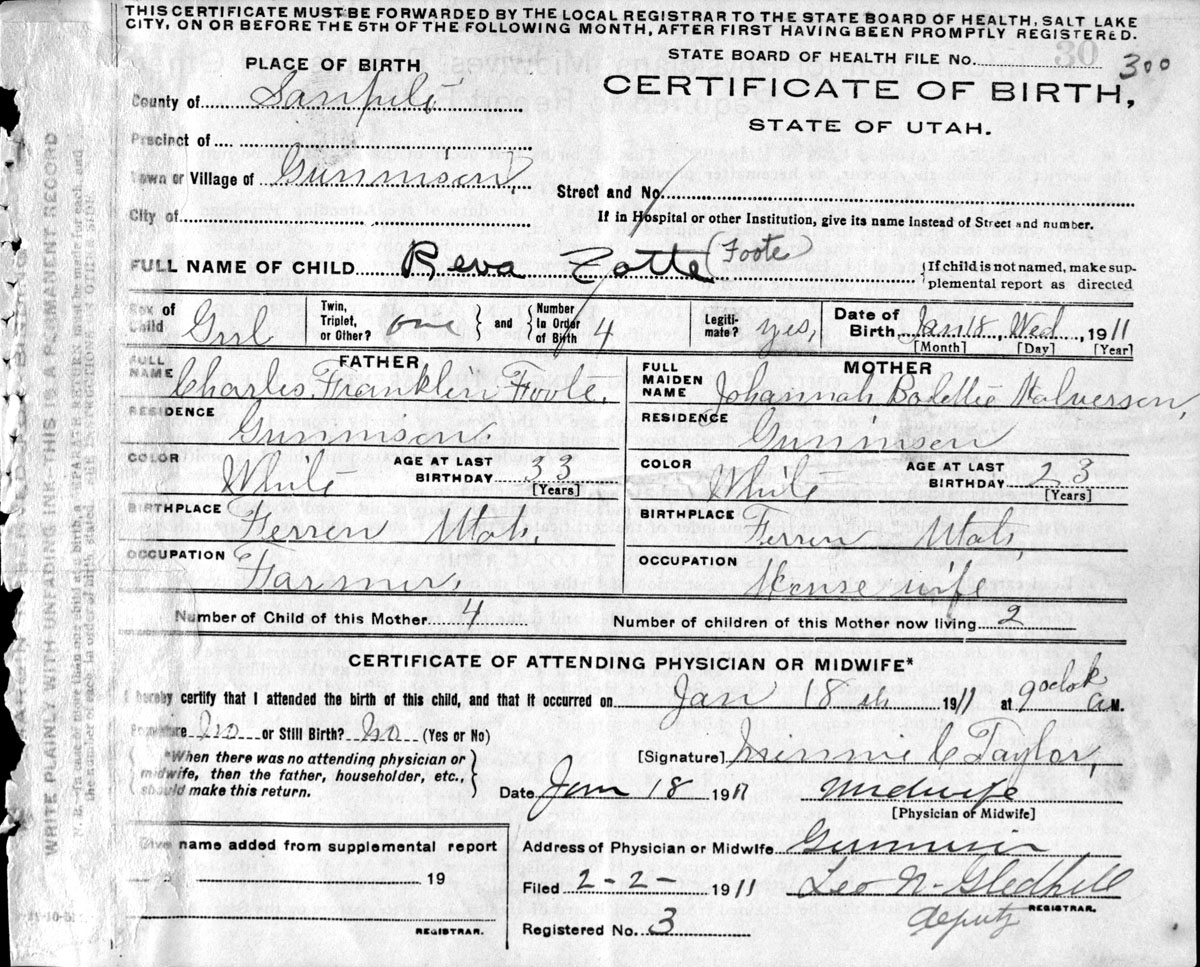 THIS CERTIFICATE MUST BE FORWARDED BY THE LOCAL REGISTRAR TO THE STATE BOARD OF HEALTH, SALT LAKE
CITY, ON OR BEFORE THE 5TH OF THE FOLLOWING MONTH, AFTER FIRST HAVING BEEN PROMPTLY REGISTERED.
STATE BOARD OF HEALTH FILE No. 30 300
PLACE OF BIRTH
CERTIFICATE OF BIRTH,
STATE OF UTAH.
County of Sanpete
Precinct of
Town or Village of Gunnison,
Street and No.
City of
If in Hospital or other Institution, give its name Instead of Street and number.
FULL NAME OF CHILD Reva Fotte (Foote)
{If child is not named, make sup-
plemental report as directed
Sex of Child Girl
Twin, Triplet, or Other? one } and { Number In Order of Birth 4
Legiti-mate? yes,
Date of Birth Jan 18, Wed, 1911
[Month] [Day] [Year]
FATHER
FULL NAME Charles Franklin Foote.
RESIDENCE Gunnison.
COLOR White AGE AT LAST BIRTHDAY 33
[Years]
BIRTHPLACE Ferren Utah,
OCCUPATION Farmer,
MOTHER
FULL MAIDEN NAME Johannah Bolettie Halverson,
RESIDENCE Gunnison
COLOR White AGE AT LAST BIRTHDAY 23
[Years]
BIRTHPLACE Ferren Utah,
OCCUPATION House wife
Number of Child of this Mother 4 Number of children of this Mother now living 2
CERTIFICATE OF ATTENDING PHYSICIAN OR MIDWIFE*
I hereby certify that I attended the birth of this child, and that it occurred on Jan 18 th 1911 at 9 oclok a M.
Premature No or Still Birth? No (Yes or No)
{ *When there was no attending physician or
midwife, then the father, householder, etc.,
should make this return. }
[Signature] Minnie C Taylor,
Date Jan 18 1911 Midwife
[Physician or Midwife]
Give name added from supplemental report
19
REGISTRAR.
Address of Physician or Midwife Gunnison
Filed 2-2- 1911 Leo N. Gledhill
deputy REGISTRAR.
Registered No. 3
MARGIN RESERVED FOR BINDING
WRITE PLAINLY WITH UNFADING INK-THIS IS A PERMANENT RECORD
N. B.-In case of more than one child at a birth, a SEPARATE RETURN must be made for each, and
the number of each, in order of birth, stated. SEE INSTRUCTIONS ON OTHER SIDE